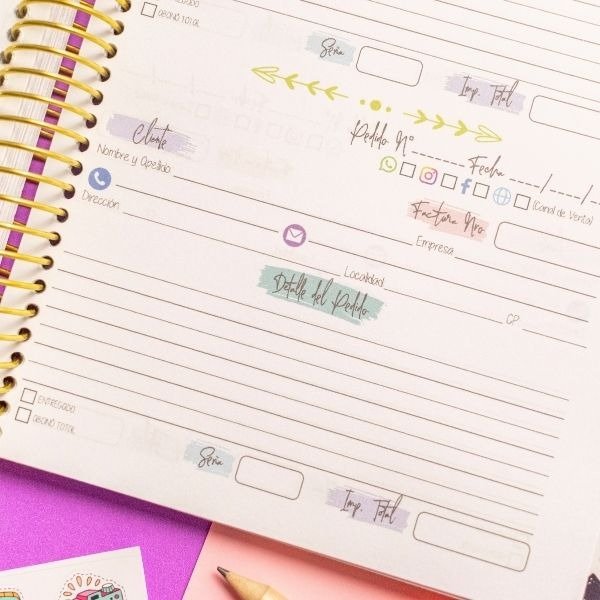 ENTREGADO
ABONÓ TOTAL
Seña
Imp. Total
Cliente
Pedido Nº
Fecha
/ /
(Canal de Venta)
Nombre y Apellido:
Factura Nro.
Dirección:
Empresa:
Localidad:
CP:
Detalle del Pedido
ENTREGADO
ABONÓ TOTAL
Seña
Imp. Total